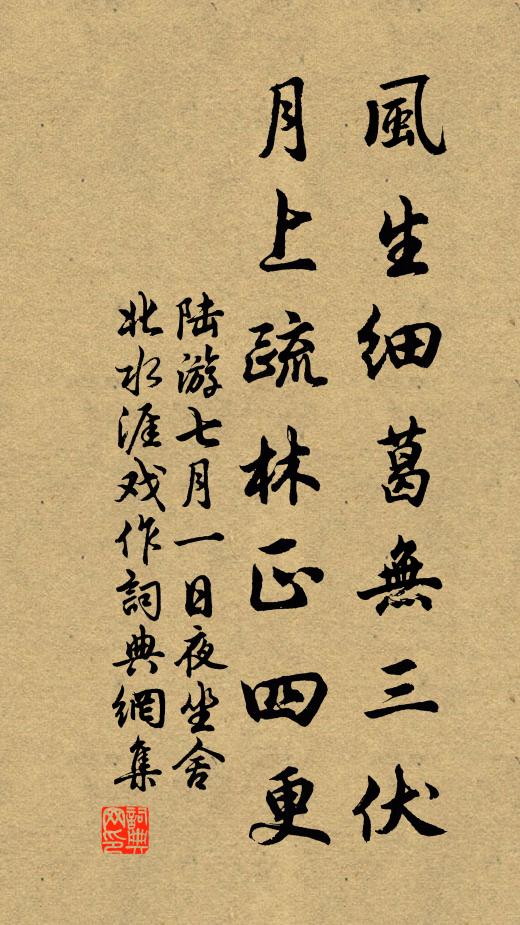 風生细葛無三伏
月上疏林正四更
陆游七月一日夜坐舍
北水涯戏作詞典網集
詞典
网印